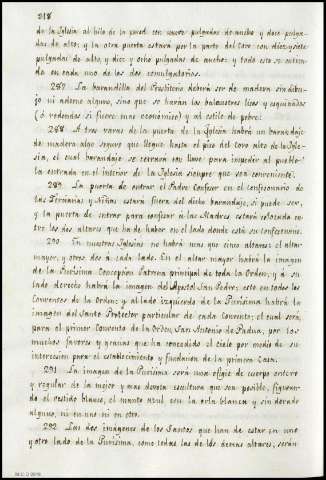 318
de la Iglesia al hilo de la pared con nueve pulgadas de ancho y doce pulga-
das de alto; y la otra puerta estará por la parte del coro con diez y siete
pulgadas de alto, y diez y ocho pulgadas de ancho: y todo esto se entien-
de en cada uno de los dos comulgatorios.
287. La barandilla del Presbiterio deberá ser de madera sin dibu-
jo ni adorno alguno, sino que se harán los balaustres lisos y esquinados
(ó redondos si fuere mas económico) y al estilo de pobre.
288. A tres varas de la puerta de la Iglesia habrá un barandaje
de madera algo seguro que llegue hasta el piso del coro alto de la Igle-
sia, el cual barandaje se cerrará con llave para impedir al pueblo
la entrada en el interior de la Iglesia siempre que sea conveniente.
289. La puerta de entrar el Padre Confesor en el confesonario de
las Terciarias y Niñas estará fuera del dicho barandaje, si puede ser,
y la puerta de entrar para confesar á las Madres estará colocada en-
tre los dos altares que ha de haber en el lado donde está su confesonario.
290. En nuestras Iglesias no habrá mas que cinco altares: el altar
mayor, y otros dos á cada lado. En el altar mayor habrá la imagen
de la Purísima Concepcion Patrona principal de toda la Orden; y á su
lado derecho habrá la imagen del Apóstol San Pedro; esto en todos los
Conventos de la Orden; y al lado izquierdo de la Purísima habrá la
imagen del Santo Protector particular de cada Convento; el cual será,
para el primer Convento de la Orden, San Antonio de Padua, por los
muchos favores y gracias que ha concedido el cielo por medio de su
intercesion para el establecimiento y fundacion de la primera Casa.
291. La imagen de la Purísima será una efigie de cuerpo entero
y regular de la mejor y mas devota escultura que sea posible, figuran-
do el vestido blanco, el manto azul, con la orla blanca y sin dorado
alguno, ni en uno ni en otro.
292. Las dos imágenes de los Santos que han de estar en uno
y otro lado de la Purísima, como todas las de los demas altares, serán